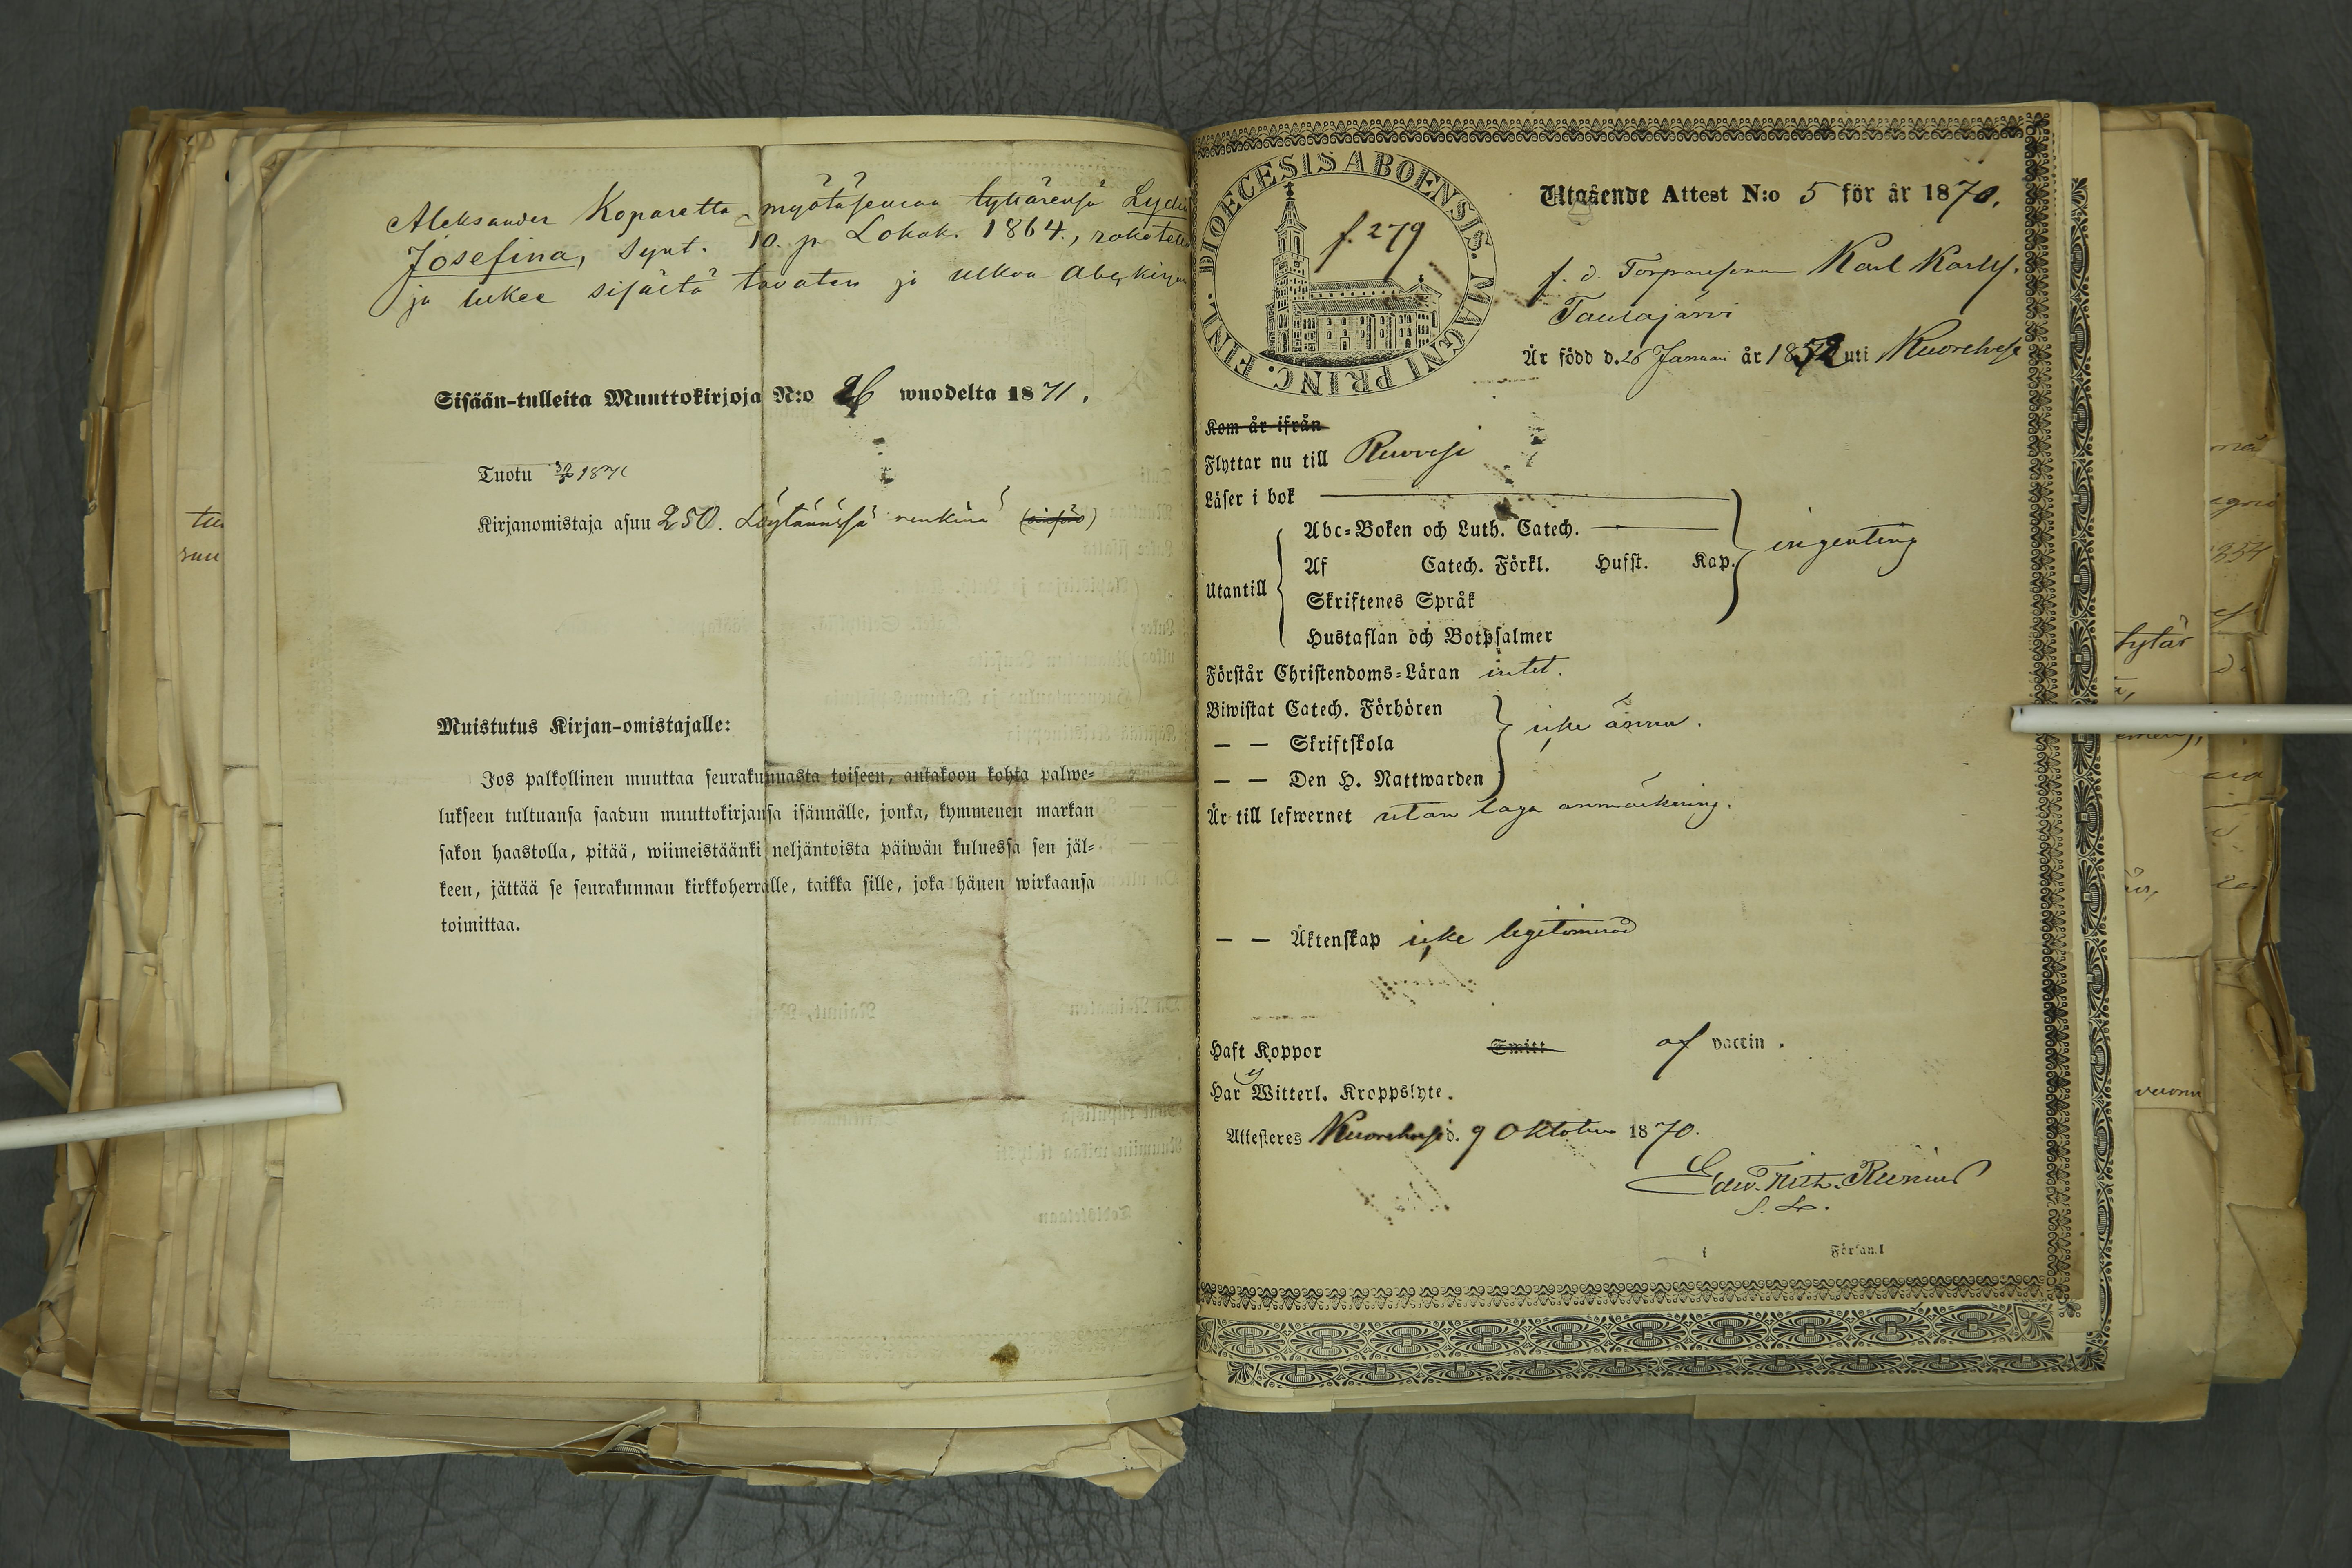 Aleksander Koparetta myötäseuraa tyttärensä Lydia
Josefina, synt. 10. p. Lokak. 1864, rokotettu
ja lukee sisältä tavaten ja ulkoa Abc, kirjan
Sisään-tulleita Muuttokirjoja N:o 26 wuodelta 1871.
Tuotu 1871
Kirjanomistaja asuu 250. Löytänessä renkinä
Muistutus Kirjan-omistajalle:
Jos palkollinen muuttaa seurakunnasta toiseen, antakoon kohta palwe=
lukseen tultuansa saadun muuttokirjansa isännälle, jonka, kymmenen markan
sakon haastolla, pitää, wiimeistäänki neljäntoista päiwän kuluessa sen jäl=
keen, jättää se seurakunnan kirkkoherralle, taikka sille, joka hänen wirkaansa
toimittaa.
DIOECESIS ABOENSIS. MAGNI PRINC. FINL.
f. 279
Utgående Attest N:o 5 för år 1870.
f. d. Torparesonen Karl Karlss.
Taulajärvi
Är född d. 26 Januari år 1852 uti Kuorehvesi
Kom år ifrån
Flyttar nu till Ruovesi
Läser i bok
Abc=Boken och Luth. Catech.
Af Catech. Förkl. Husst. Kap.
ingenting
Utantill
Skriftenes Språk
Hustaflan och Botpsalmer
Förstår Christendoms=Läran intet.
Biwistat Catech. Förhören
— — Skriftskola
icke ännu.
— — Den H. Nattwarden
Är till lefwernet utan laga anmärkning.
— — Äktenskap icke legitimerad
Haft Koppor Smitt af vaccin.
Har ej Witterl. Kroppslyte.
Attesteres Kuorehvesi d. 9 Oktober 1870.
Edw. Nith. Runius
S. L.
i Församl